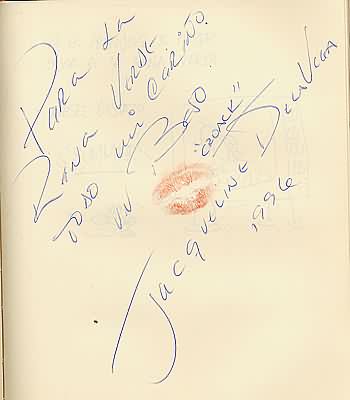 Para la
Rana Verde
todo mi cariño.
un Beso
"CROACK"
Jacqueline De la Vega
1996